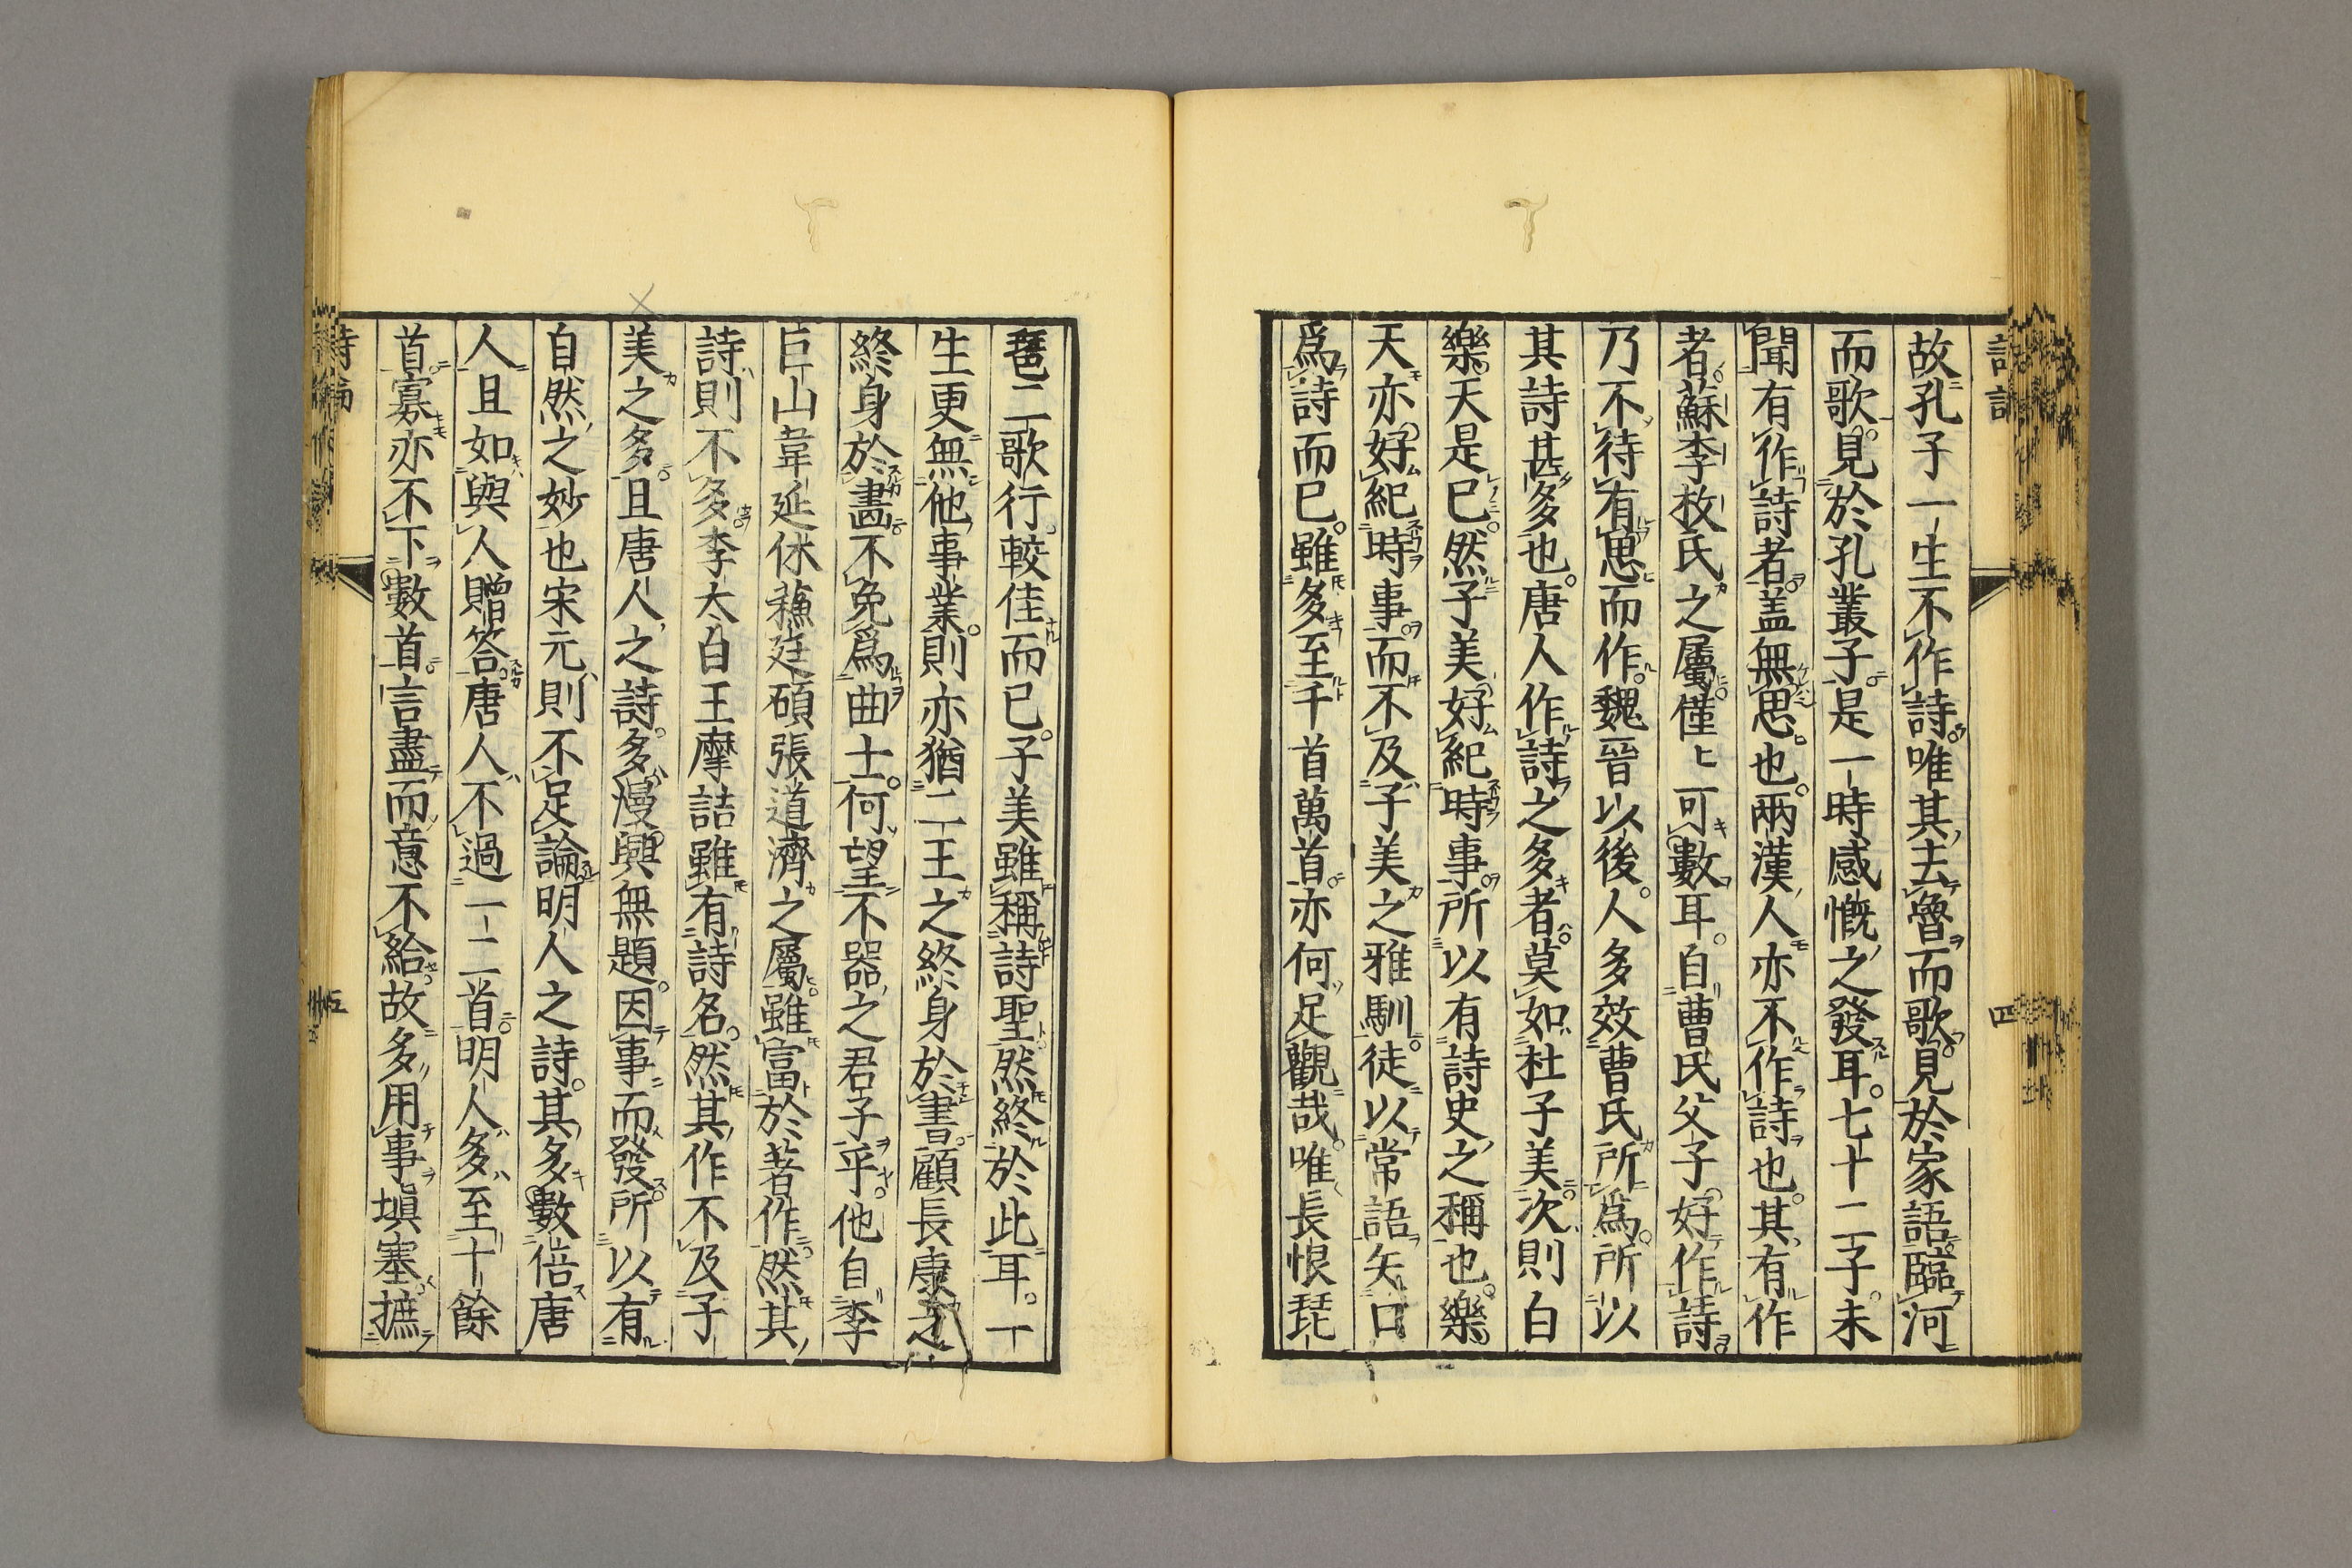 故孔子一生不作詩唯其去魯而歌見於家語臨河
而歌見於孔叢子是一時感慨之發耳。七十二子未
聞有作詩者。盖無思也。兩漢人亦不作詩也。其有作
者。蘇李枚氏之屬僅上可數耳。自曹氏父子好作詩
乃不待有思而作。魏晉以後。人多效曹氏所爲。所以
其詩甚多也。唐人作詩之多者。莫如杜子美。次則白
樂天是已。然子美好紀時事。所以有詩史之稱也。樂
天亦好紀時事。而不及子美之雅馴。徒以常語矢口
爲詩而已。雖多至千首萬首。亦何足觀哉。唯長恨琵
琶二歌行。較佳而已。子美雖稱詩聖。然終於此耳。一
生更無他事業。則亦猶二王之終身於書。顧長康之
終身於畫。不免爲曲士。何望不器之君子乎。他自李
巨山韋延休蘓廷碩張道濟之屬。雖富於著作。然其
詩則不多。李太白王摩詰雖有詩名。然其作不及子
美之多。且唐人之詩。多漫興無題。因事而發。所以有
自然之妙也宋元則不足論。明人之詩。其多數倍唐
人且如與人贈答。唐人不過一二首。明人多至十餘
首。寡亦不下數首。言盡而意不給。故多用事塡塞摭
四
五